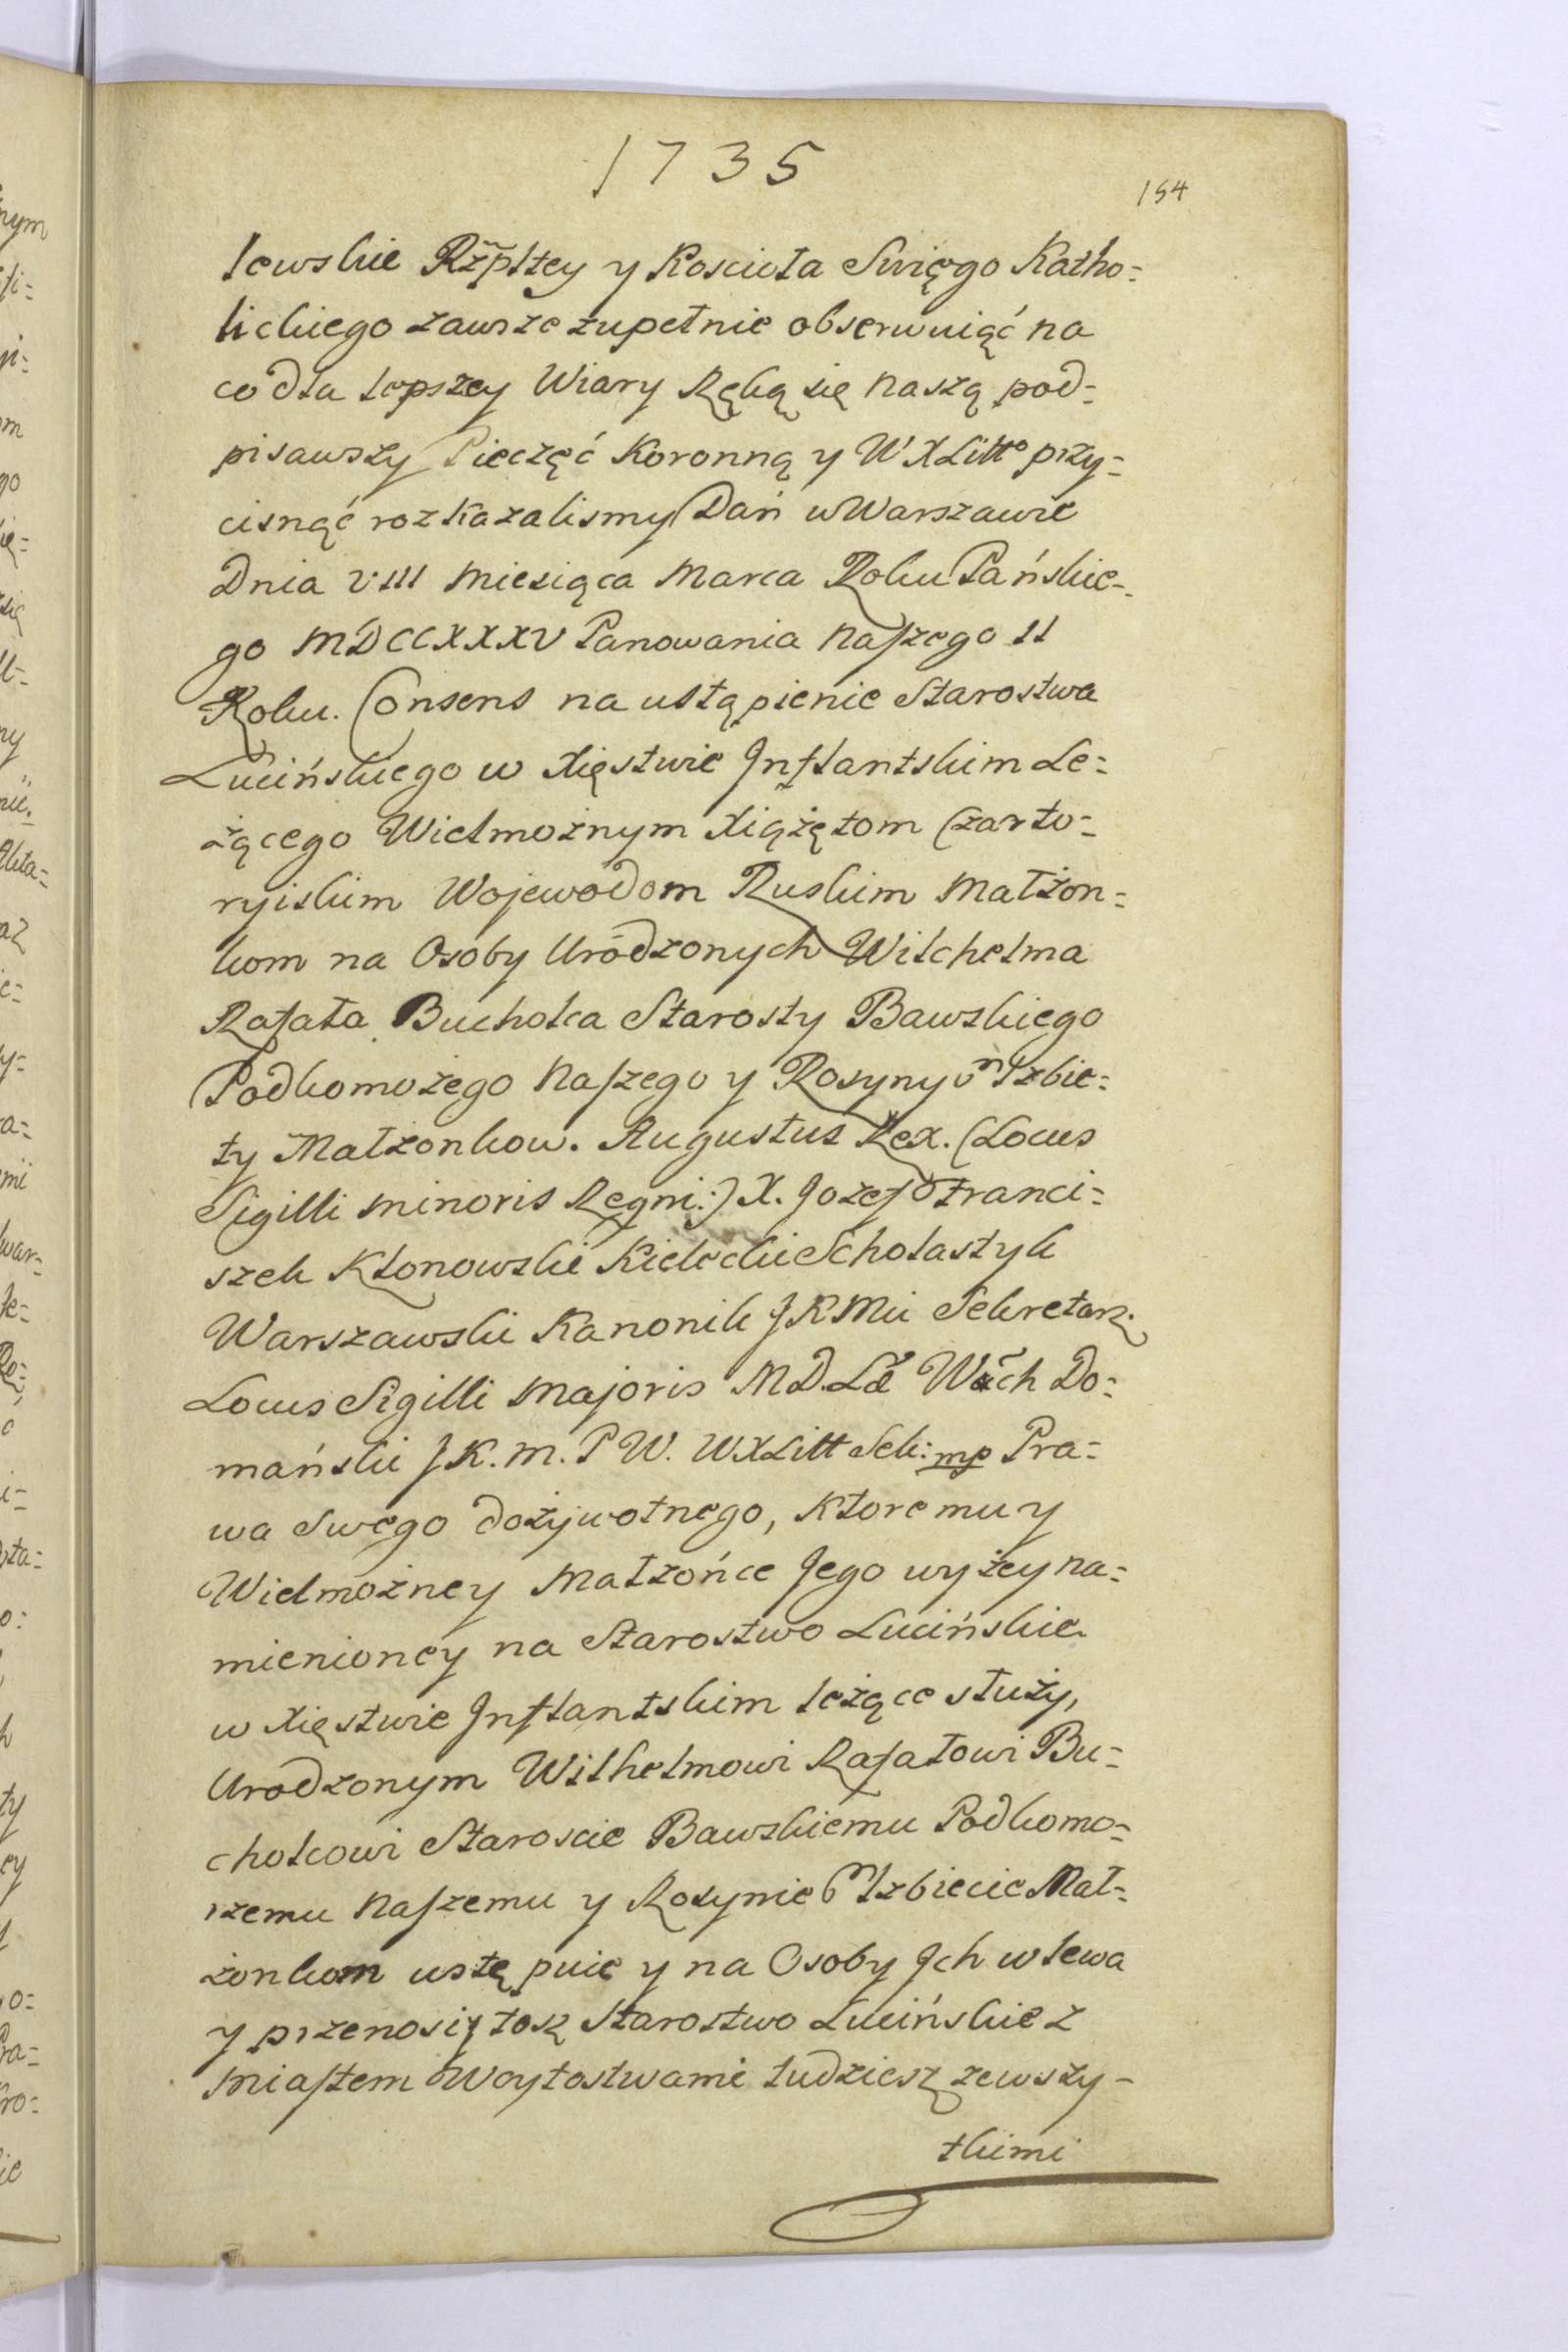 1735
154
lewskie Rzpltey y Kościoła Swięgo Katho=
lickiego zawsze zupełnie obserwuiąć na
co dla lepszey Wiary Ręką się naszą pod=
pisawszy Pieczęć Koronną y W X Litto przy=
cisnąć rozkazalismy Dań w Warszawie
Dnia VIII Miesiąca Marca Roku Pańskie=
go MDCCXXXV Panowania naszego II
Roku. Consens na ustąpienie Starostwa
Lucińskiego w Xięstwie Inflantskim Le=
żącego Wielmożnym Xiążętom Czarto=
ryiskim Wojewodom Ruskim Małżon=
kom na Osoby Urodzonych Wilchelma
Rafała Bucholca Starosty Bawskiego
Podkomożego Naszego y Rosyny Elzbie=
ty Małzonkow. Augustus Rex. (Locus
Sigilli minoris Regni:) X. Jozef Franci=
szek Kłonowski Kielecki Scholastyk
Warszawski Kanonik JKMci Sekretarz
Locus Sigilli Majoris MD.Læ Wach Do=
mański J K. M. P W. WXLitt Sek: mp Pra=
wa Swego dożywotnego, ktoremu y
Wielmożney Małzońce Jego wyżey na=
mienioney na Starostwo Lucińskie
w Xięstwie Inflantskim leżące służy,
Urodzonym Wilhelmowi Rafałowi Bu=
cholcowi Staroscie Bawskiemu Podkomo=
rzemu Naszemu y Rosynie Elzbiecie Mał=
żonkom ustępuie y na Osoby Ich wlewa
y przenosi toż Starostwo Lucińskie z
Miastem Woytostwami tudziesz zewszy=
tkimi